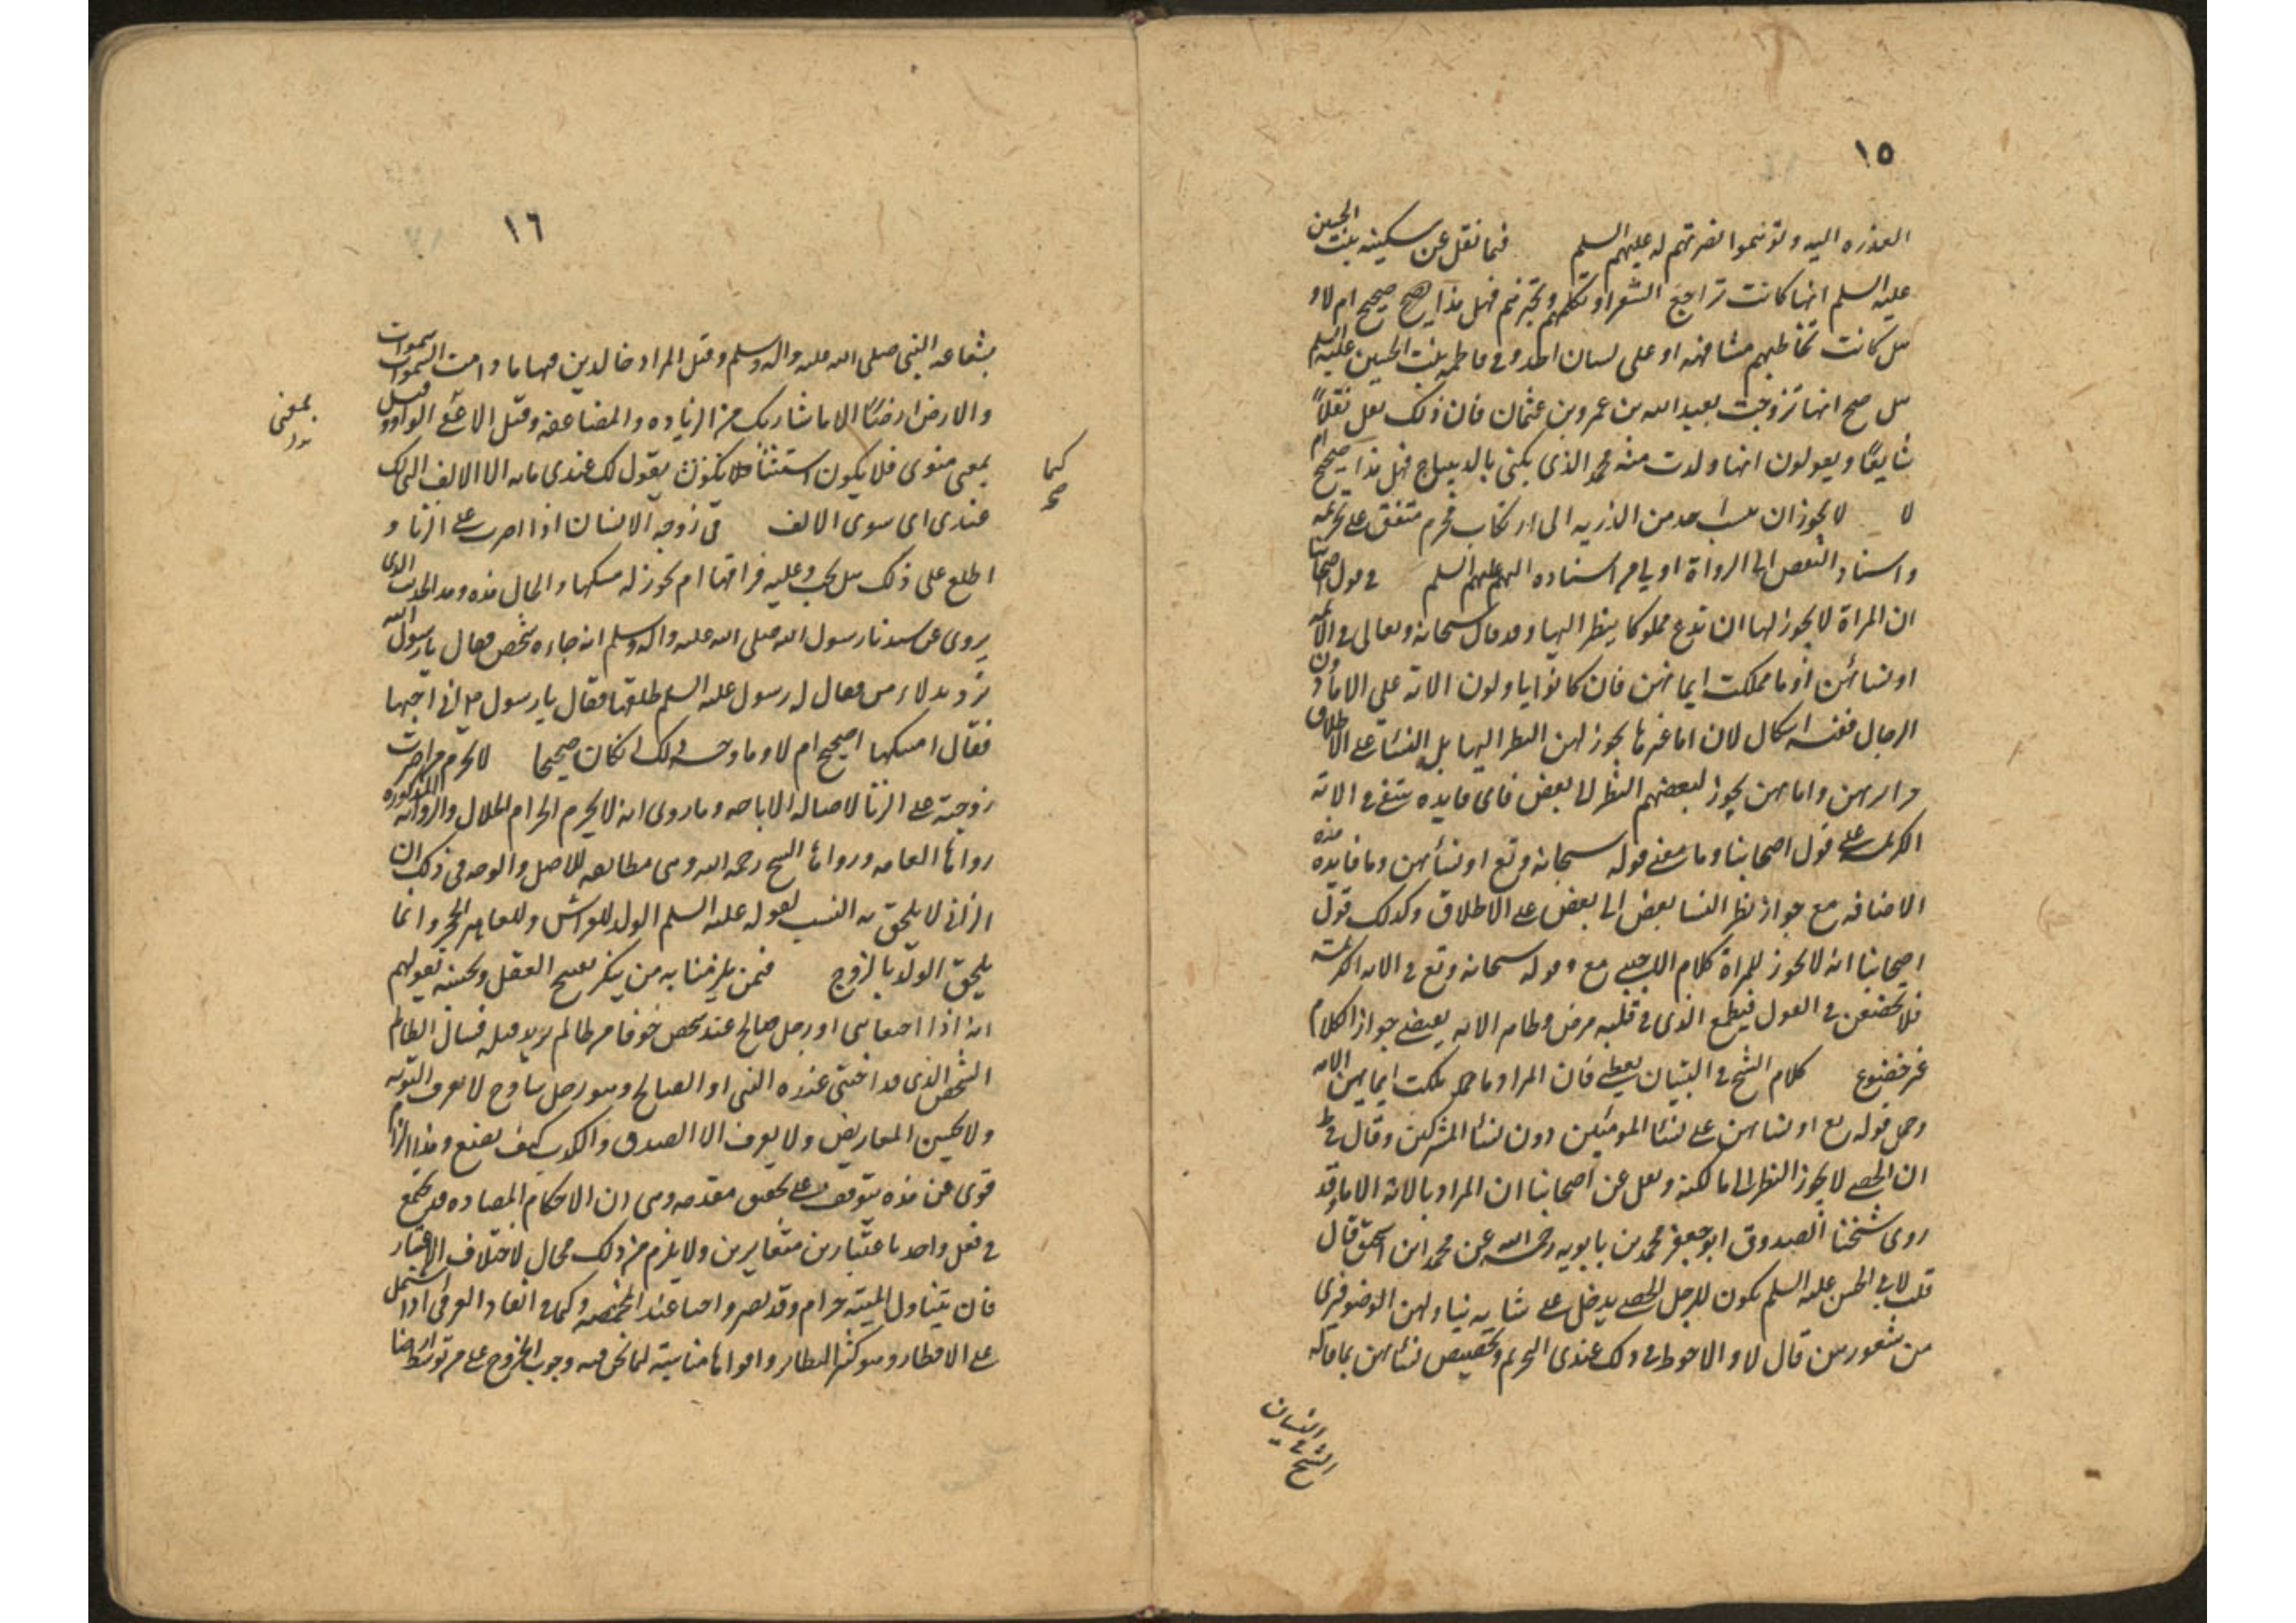 ١٥
العذره اليه ولو نحموا نصرتهم له عليهم السلم فيما نقل عن سكينه بنت الحسين
عليه السلم انها كانت تراجع الشعراء وتكلمهم وتجيزهم فهل هذا صحيح ام لا و
هل كانت تخاطبهم مشافهه او على لسان احد وفي فاطمه بنت الحسين عليه السلم
هل صح انها تزوجت بعبد الله بن عمرو بن عثمان فان ذلك نقل نقلاً
شايعًا ويقولون انها ولدت منه محمد الذى يكنى بالديباج فهل هذا صحيح ام
لا لا يجوز ان ينسب احد من الذريه الى ارتكاب محرم متفق على تحريمه
واسناد النقص الى الرواة اولى من اسناده اليهم عليهم السلم في قول اصحابنا
ان المراة لا يجوز لها ان تدع مملوكا ينظر اليها وقد قال سبحانه وتعالى في الايه
او نسائهن او ما ملكت ايمانهن فان كانوا ياولون الايه على الاما دون
الرجال ففيه اشكال لان اما غيرها يجوز لهن النظر اليها بل النساء على الاطلاق
حرايرهن واماهن يجوز لبعضهم النظر الى بعض فاى فايده تبقى في الايه
الكريمه على قول اصحابنا وما معنى قوله سبحانه وتع او نسائهن وما فايده هذه
الاضافه مع جواز نظر النسا بعض الى بعض على الاطلاق وكذلك قول
اصحابنا انه لا يجوز للمراة كلام الاجنبي مع قوله سبحانه وتع في الايه الكريمة
فلا تخضعن في القول فيطمع الذى في قلبه مرض وظاهر الايه يقتضى جواز الكلام
غير خضوع كلام الشيخ في التبيان يعطى فان المراد ما ملكت ايمانهن الاماء
وحمل قوله تع او نسائهن على نساء المومنين دون نساء المشركين وقال في ط
ان الخصى لا يجوز النظر الى مالكته ونقل عن اصحابنا ان المراد بالايه الاما وقد
روى شيخنا الصدوق ابو جعفر محمد بن بابويه رحمه الله عن محمد ابن اسحق قال
قلت لابى الحسن عليه السلم يكون للرجل الخصى يدخل على نسايه يناولهن الوضو فيرى
من شعورهن قال لا والاحوط في ذلك عندى التحريم وتخصيص نسائهن بما قاله
الشيخ في التبيان
١٦
بشفاعه النبى صلى الله عليه واله وسلم وقيل المراد خالدين فيها ما دامت السموات
والارض ارضًا الا ما شا ربك من الزياده والمضاعفه وقيل الا بمعنى الواو وقيل
بمعنى سوى فلا يكون استثنا كما يقول لك عندى مايه الا الالف التى لك
عندى اى سوى الالف في زوجه الانسان اذا اصرت على الزنا و
اطلع على ذلك هل يجب عليه فراقها ام يجوز له مسكها والحال هذه وهذا الحديث الذى
يروى عن سيدنا رسول الله صلى الله عليه واله وسلم انه جاءه شخص فقال يا رسول الله
فقال له رسول عليه السلم طلقها فقال يا رسول الله انى احبها
فقال امسكها اصحيح ام لا وما وجه ذلك ان كان صحيحا لا تحرم من اصرت
زوجيته على الزنا لاصاله الاباحه وما روى انه لا يحرم الحرام الحلال والروايه المذكوره
رواها العامه ورواها الشيخ رحمه الله وهى مطابقه للاصل والوجه في ذلك ان
الزانى لا يلحق به النسب لقوله عليه السلم الولد للفراش وللعاهر الحجر وانما
يلحق الولد بالزوج فيمن يلزمنا به من ينكر تقبيح العقل وتحسينه بقولهم
انه اذا اختفا نبى او رجل صالح عند شخص خوفا من ظالم يريد قتله فسال الظالم
الشخص الذى قد اختفى عنده النبى او الصالح وهو رجل ساذج لا يعرف التوريه
ولا يحسن المعاريض ولا يعرف الا الصدق والكذب كيف يصنع وهذا الزام
قوى عن هذه يتوقف على تحقيق مقدمه وهى ان الاحكام المتضاده قد تجتمع
في فعل واحد باعتبارين متغايرين ولا يلزم من ذلك محال لاختلاف الاعتبار
فان تناول الميته حرام وقد يصير واجبا عند المخمصه وكما في انقاذ الغرقى اذا اشتمل
على الافطار وهو كثير النظاير واقواها مناسبة لما نحن فيه وجوب الخروج على من توسط ارضا
بمعنى
كما
صح